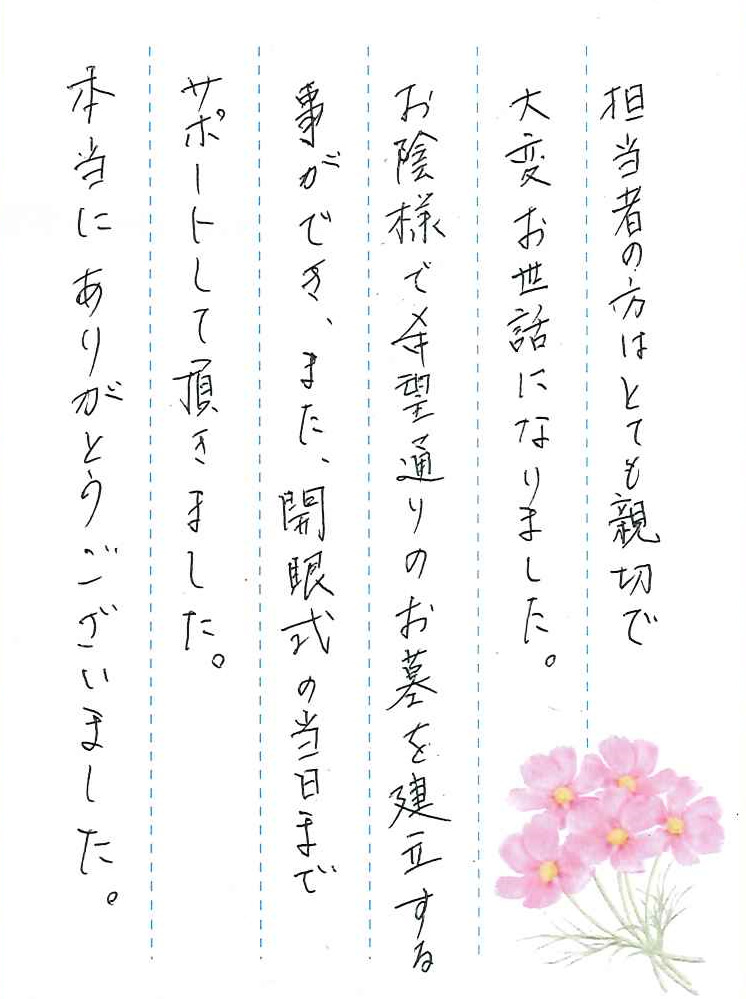 担当者の方はとても親切で
大変お世話になりました。
お陰様で希望通りのお墓を建立する
事ができ、また、開眼式の当日まで
サポートして頂きました。
本当にありがとうございました。